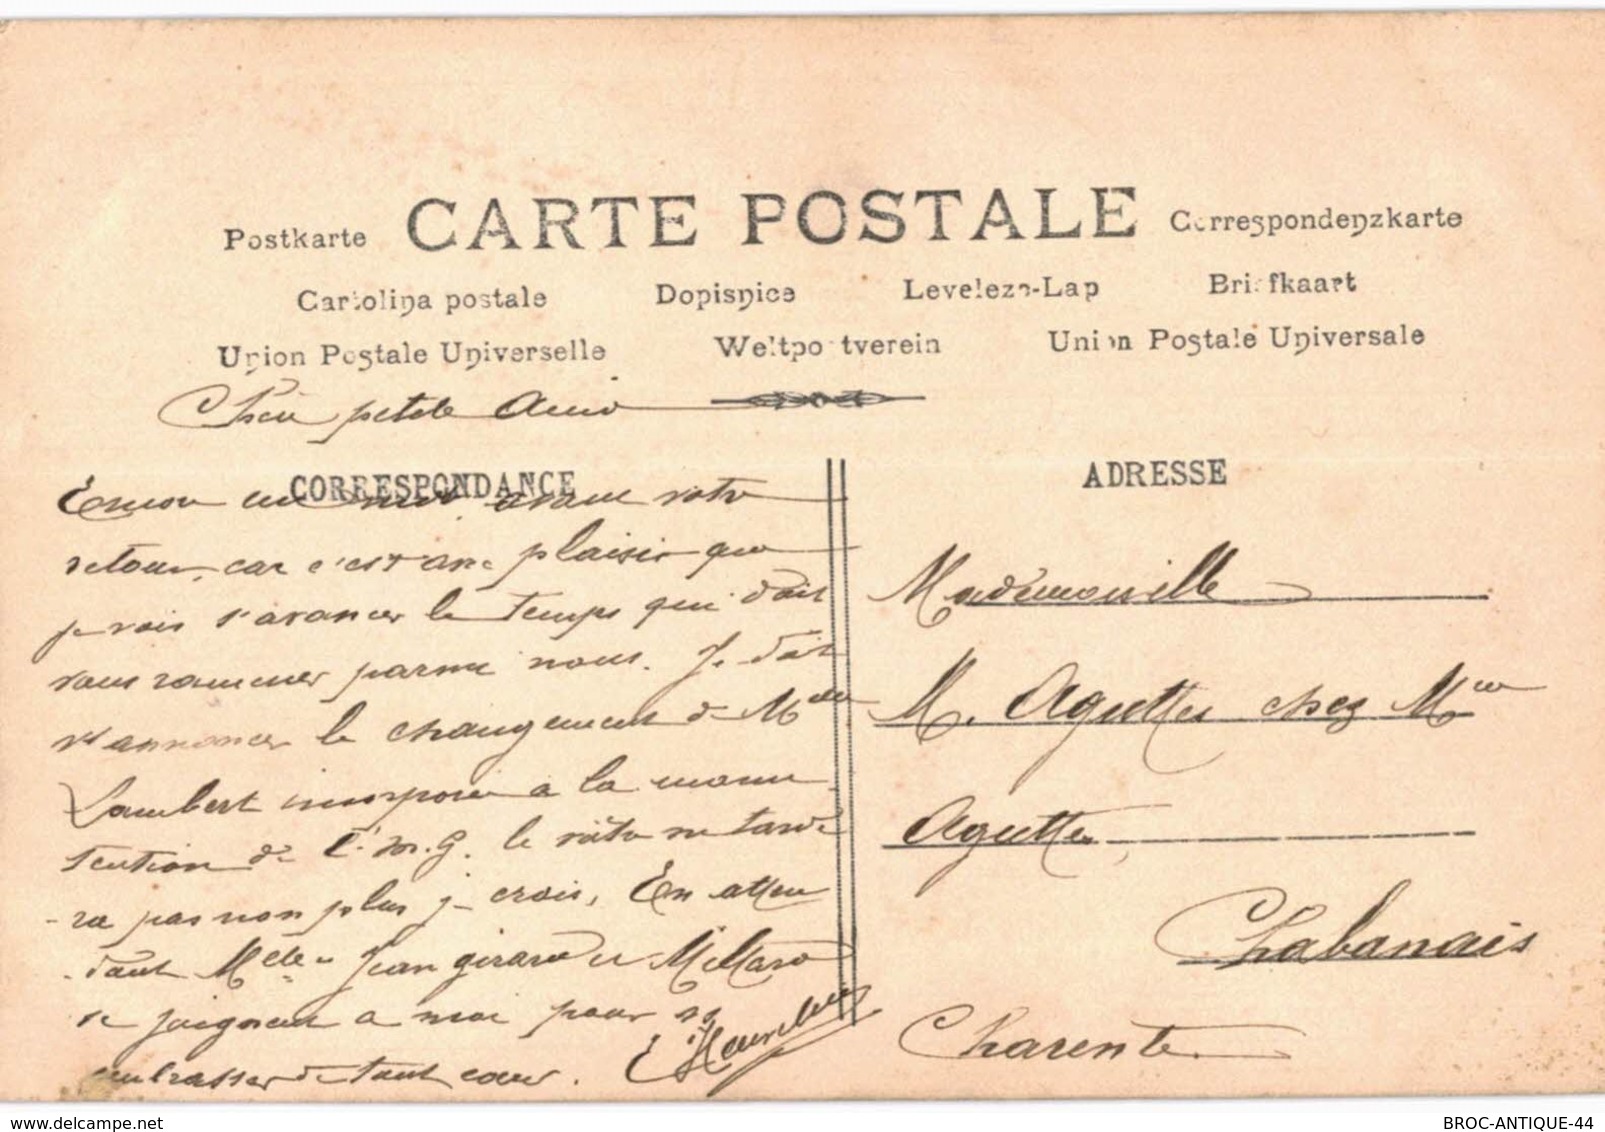 CARTE POSTALE
Postkarte
Correspondenzkarte
Cartolina postale
Dopisnice
Levelezo-Lap
Briefkaart
Union Postale Universelle
Weltpostverein
Union Postale Universale
petite
CORRESPONDANCE
Encore un mot avant votre
retour, car c'est avec plaisir que
je vois s'avancer le temps qui doit
vous ramener parmi nous. Je dois
t'annoncer le changement de Melle
Lambert incorporée a la manu
tention de l' . le vôtre ne tarde
-ra pas non plus je crois, En atten
-dant Melles Jeangirard et
se joignent a moi pour
embrasser de tout cœur.
ADRESSE
Mademoiselle
M. Aguttes chez Mme
Aguttes
Chabanais
Charente
BROC-ANTIQUE-44